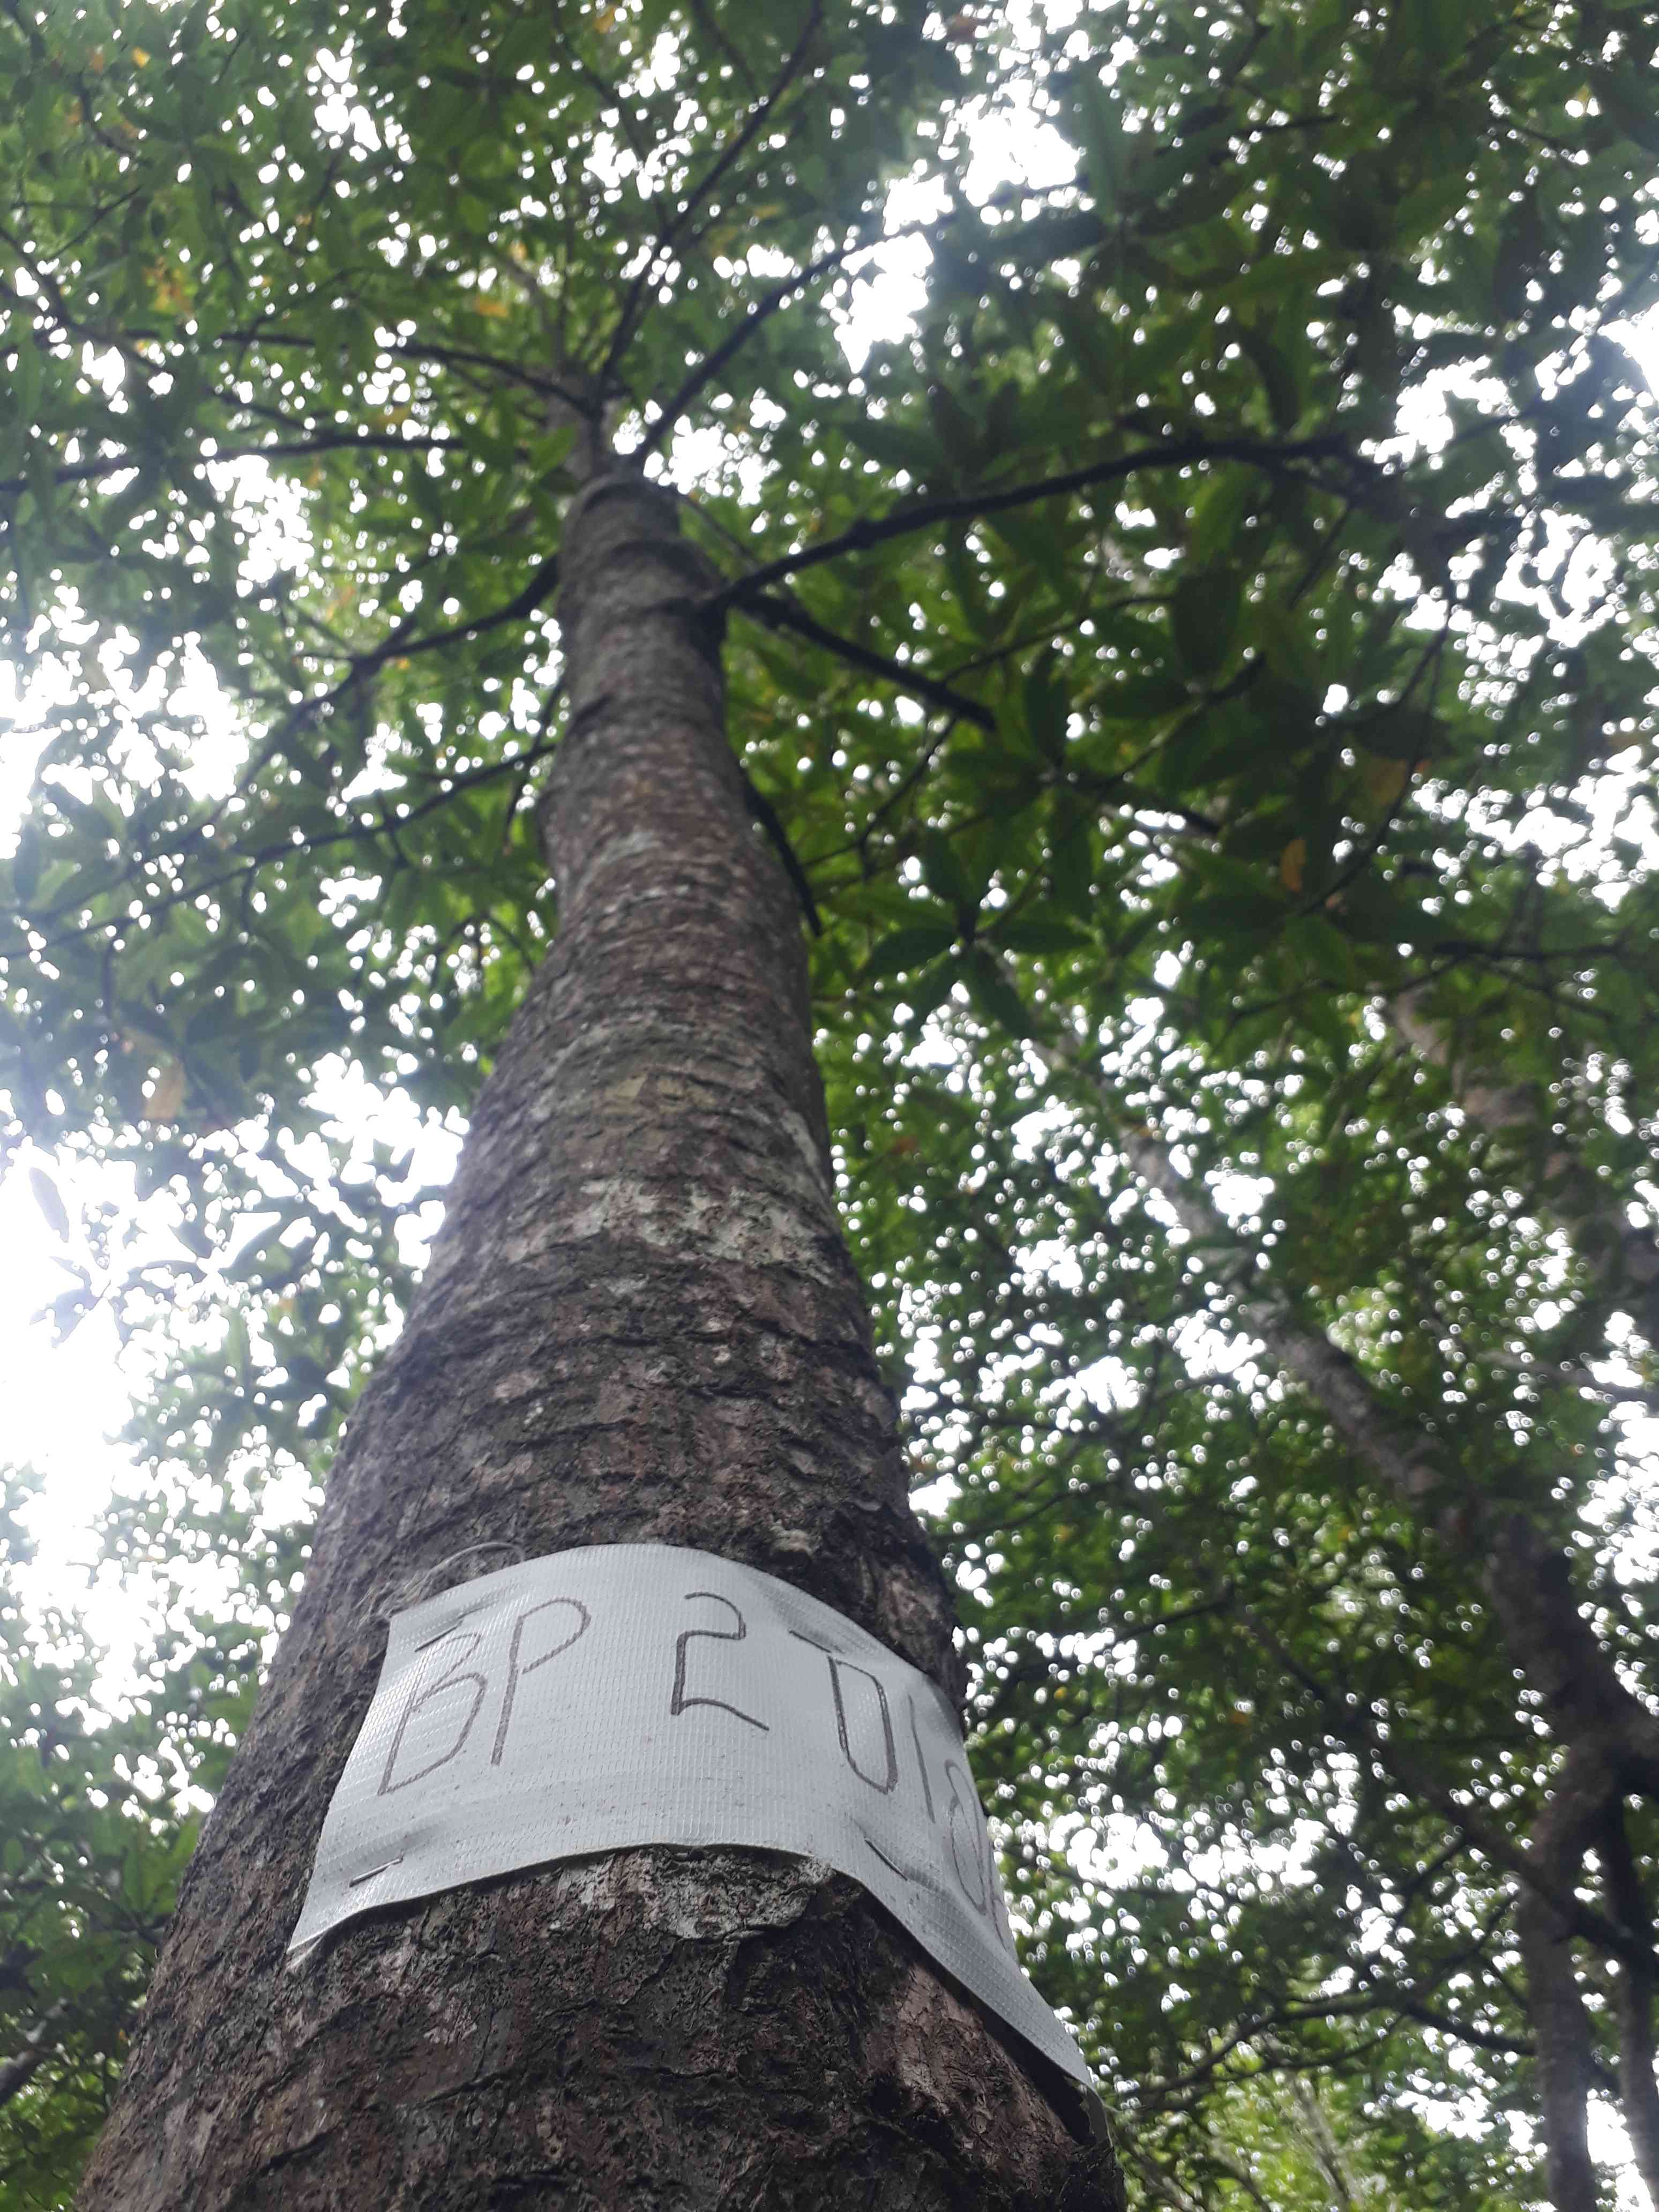 BP 2 D18